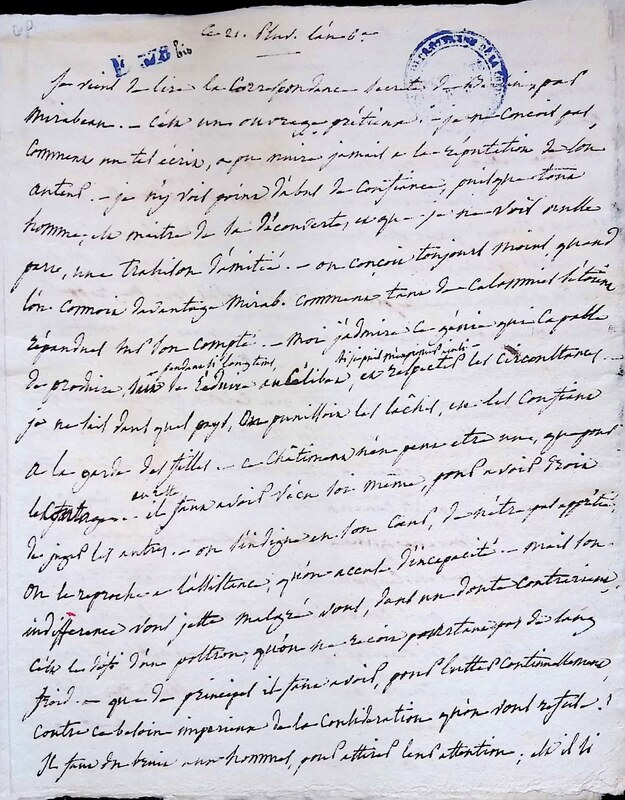 ce 21. Pluv. l'an 6e
je viens de lire la correspondance secrete de Berlin, par
Mirabeau. – C'est un ouvrage prétieux. – je ne conçois pas,
comment un tel écrit, a pu nuire jamais a la réputation de son
auteur. – je n'y vois point d'abus de confiance, puisque tout
homme, est maitre de sa découverte, et que je ne vois nulle
part, une trahison d'amitié. – on conçoit toujours moins quand
l'on connoit davantage Mirab. comment tant de calomnies s'étoient
répandues sur son compte. – moi j'admire ce génie qui capable
pendant si longtems,
de produire, sait se réduire au et respecter les circonstances. –
je ne sais dans quel pays, on punissoit les lâches, en les confiant
a la garde des filles. – ce châtiment n'en peut etre un, que pour
au reste
– il faut avoir vécu soi même, pour avoir droit
de juger les autres. – on s'indigne en son coeur, de n'être pas apprétié.
on se reproche a l'assistance, qu'on accuse d'incapacité. – mais son
indifférence vous jette malgré vous, dans un doute contrariant.
c'est le défi d'un poltron, qu'on ne reçoit pourtant pas de sang
froid. – que de principes il faut avoir, pour lutter continuellement
contre ce besoin impérieux de la considération qu'on vous refuse!
Il faut du bruit aux hommes, pour attirer leur attention; et il